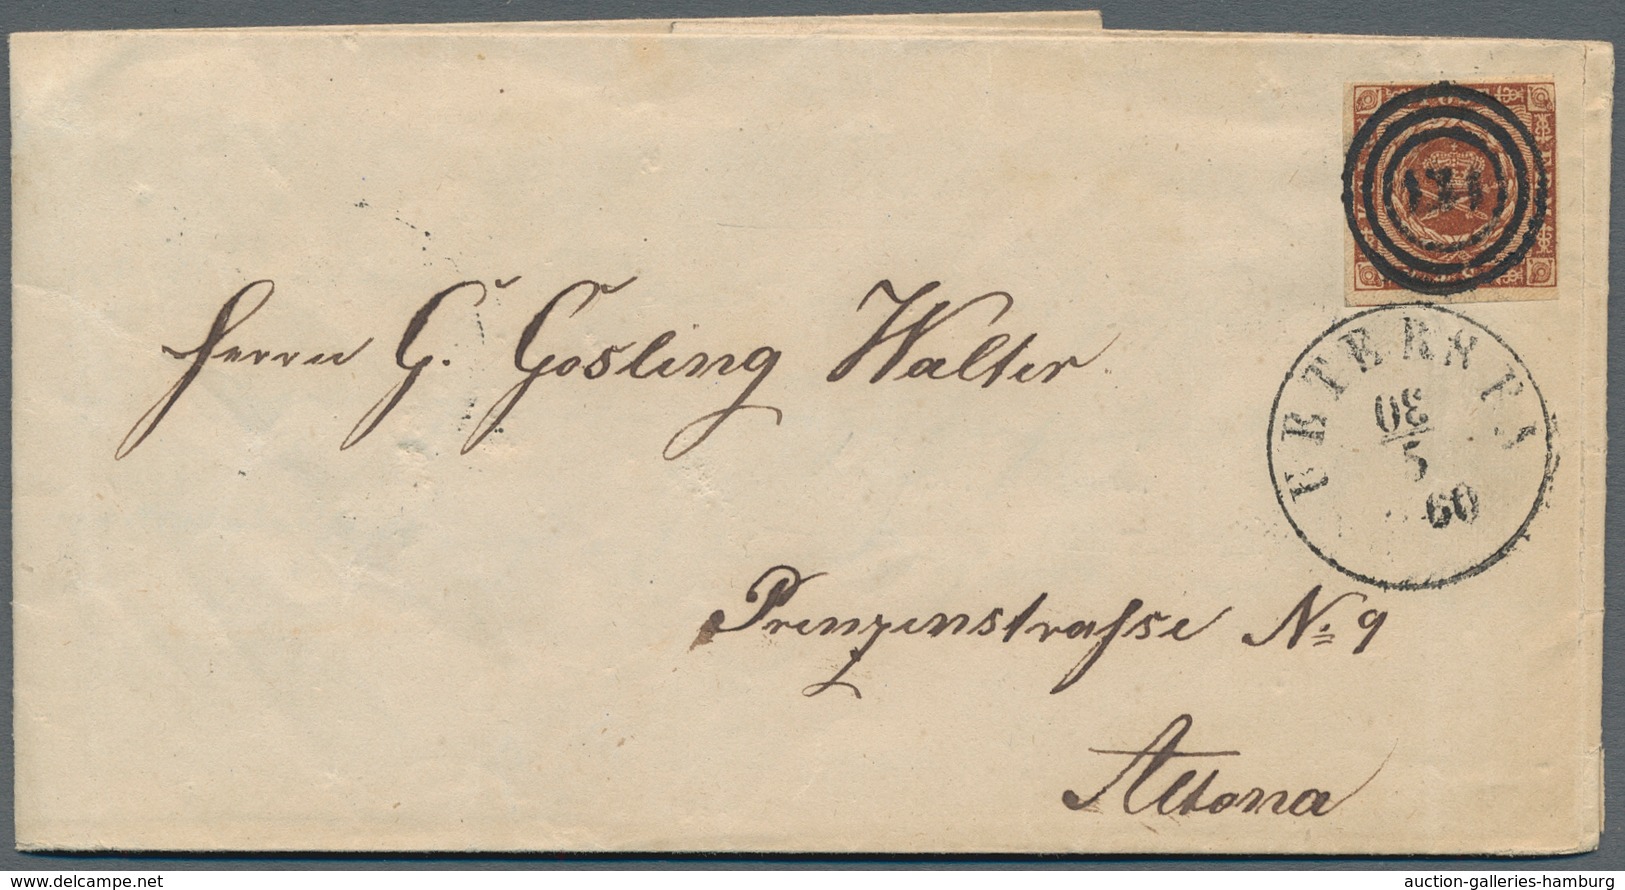 Herrn G. Gosling Walter
171
UETERSEN
30
5
60
Prinzenstrasse No. 9
Altona
delcampe.net
auction-galleries-hamburg